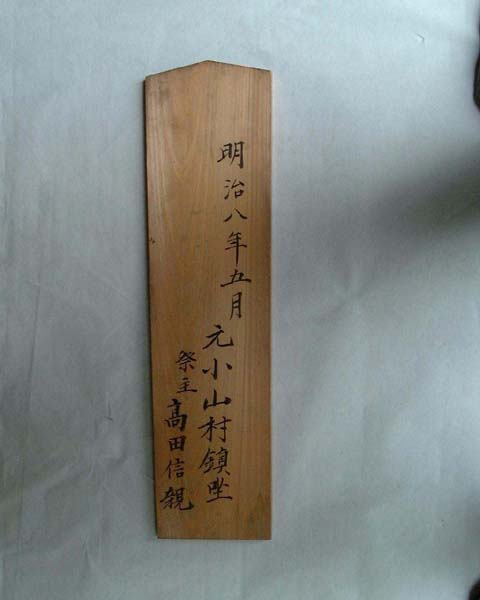 明治八年五月
元小山村鎮坐
祭主
髙田信親